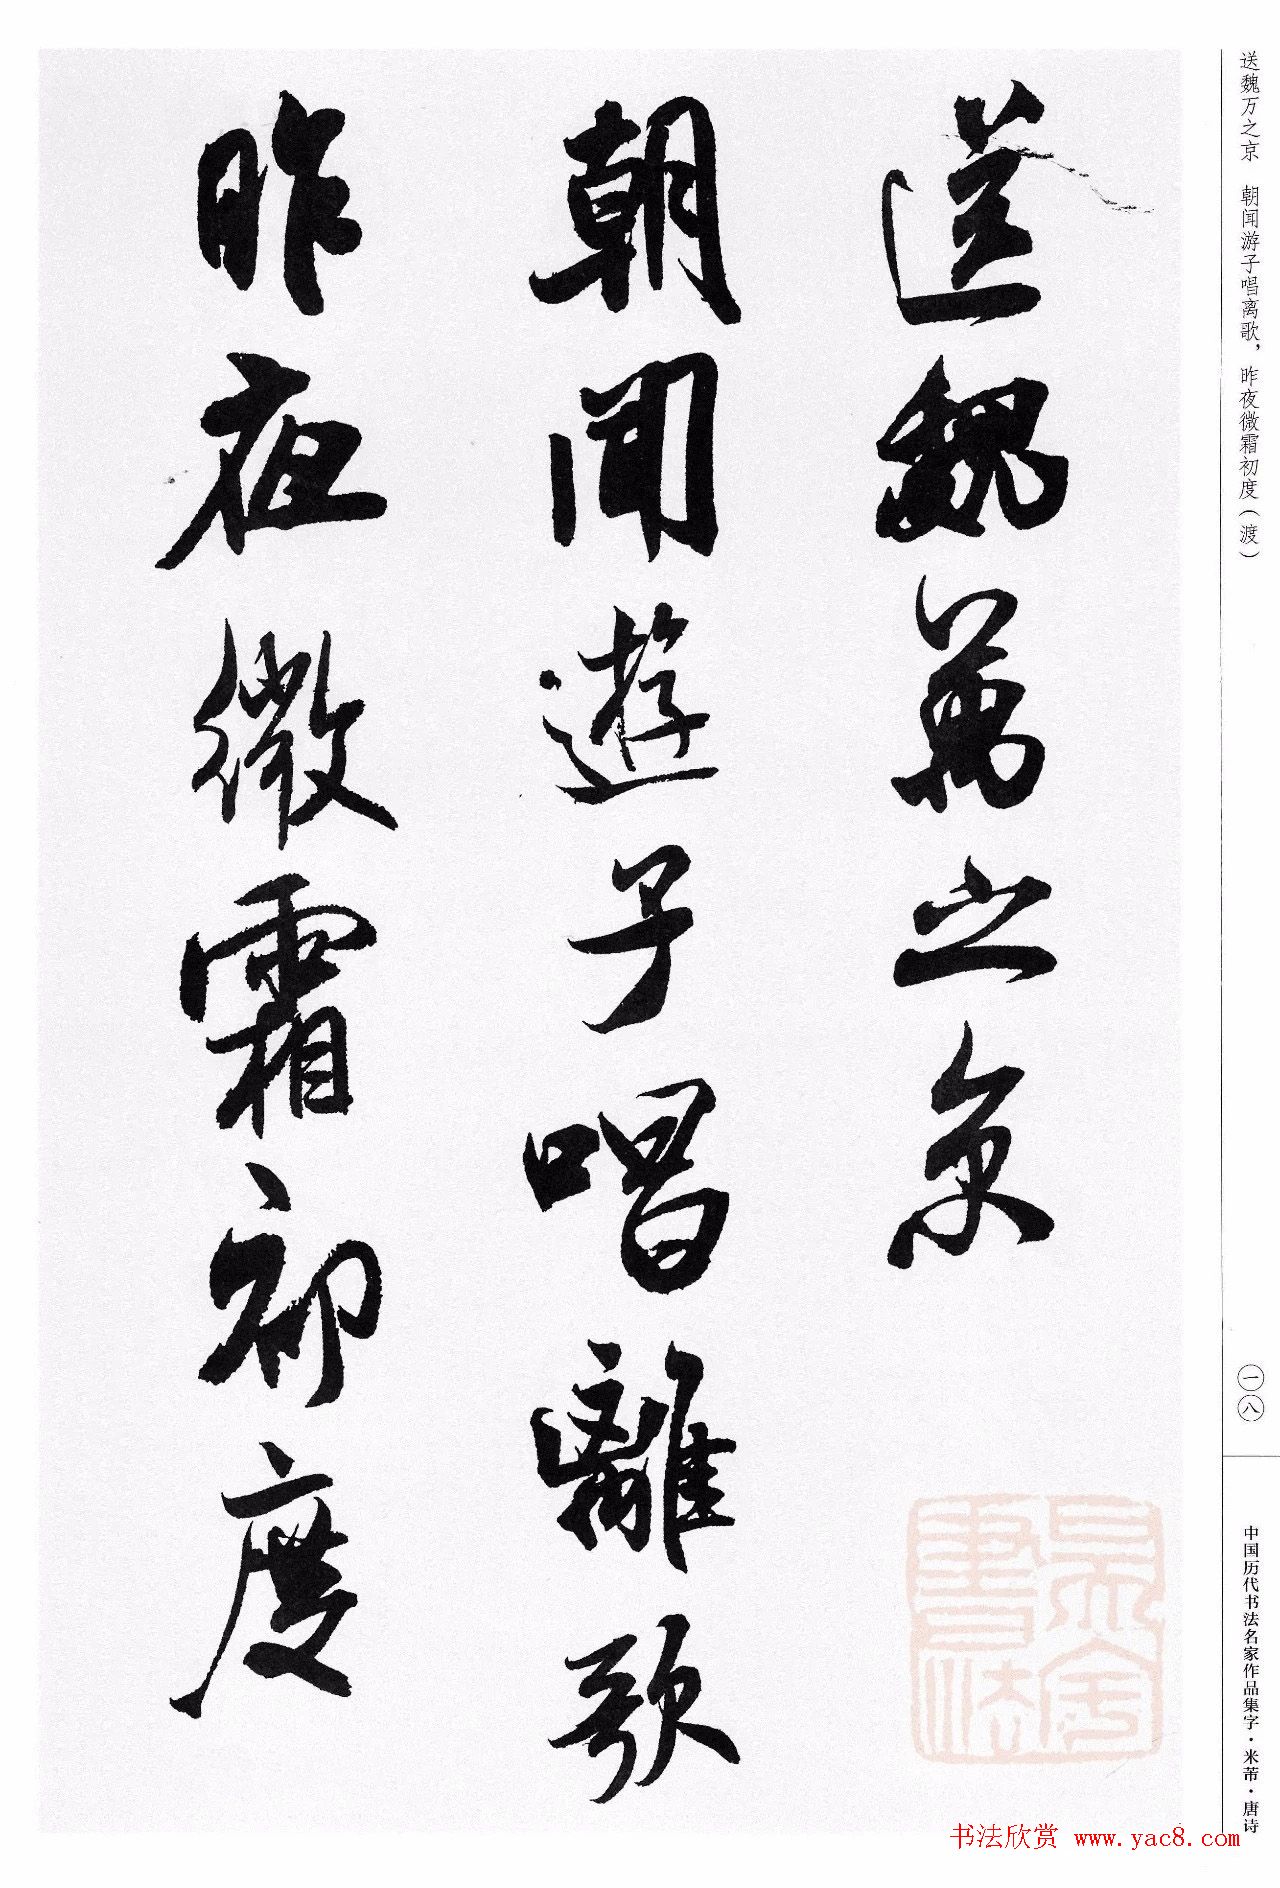 送魏万之京　朝闻游子唱离歌，昨夜微霜初度（渡）
送魏萬之京
朝聞遊子唱離歌
昨夜微霜初度
一八
中国历代书法名家作品集字·米芾·唐诗
书法欣赏 www.yac8.com